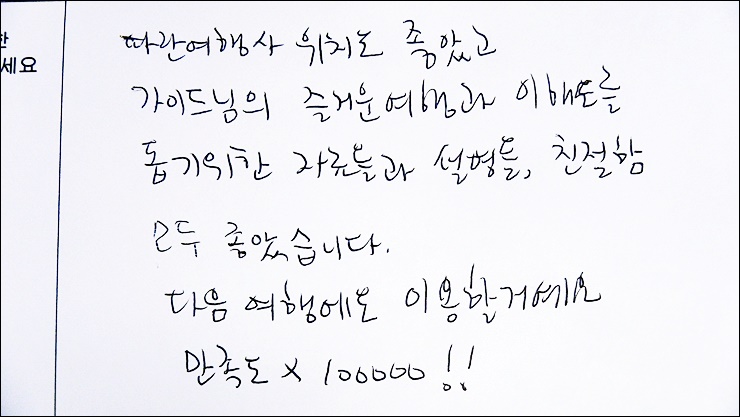 한
세요
따란여행사 위치도 좋았고
가이드님의 즐거운여행과 이해도를
돕기위한 자료들과 설명들, 친절함
모두 좋았습니다.
다음 여행에도 이용할거예요
만족도 x 100000 !!